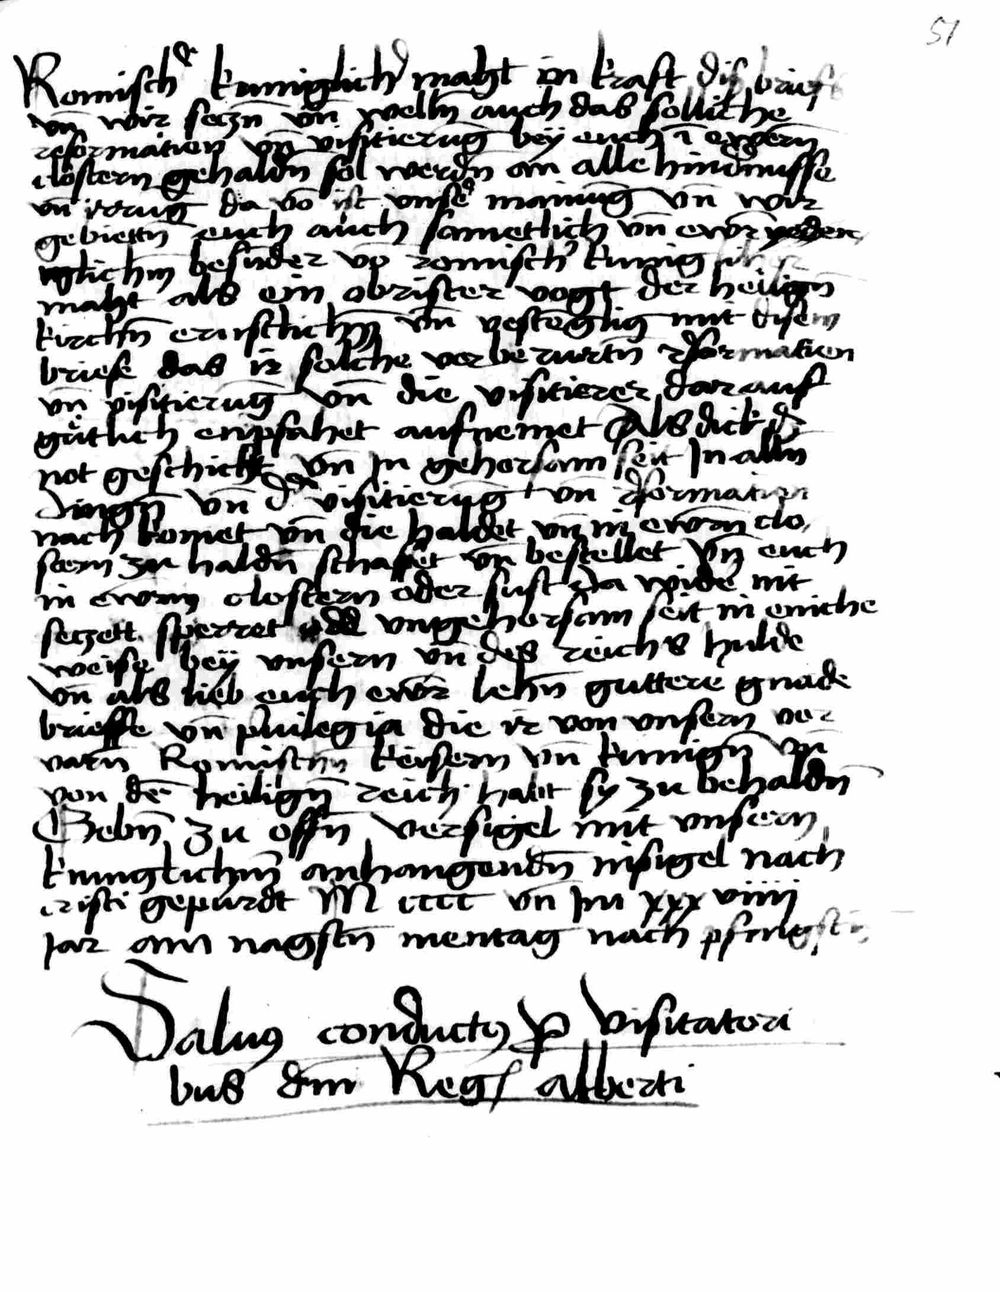 51
Romischer kuniglicher maht in kraft diß briefs
vn̄ wir seczn vn̄ welln̄ auch das solliche
reformatien vn̄ visitierūg bey euch ī ewern̄
clostern gehaldn̄ sol werdn̄ an alle hindnusse
vn̄ irrūg da vō ist vnser mainūg vn̄ wir
gebiettn̄ euch auch sametlich vn̄ ewr̄ yeden
iglichm̄ besūder vō romischer kunig
maht als ein obrister vogt der heilign̄
kirchn̄ ernstlichn̄ vn̄ vesteglig mit disem
briefe das ir solche verberurtn̄ reformatien
vn̄ visitierūg vn̄ die visitierer darauf
gütlich enpfahet aufnemet Als dick des
not geschicht vn̄ In gehorsam seit In alln̄
dingn̄ vn̄ der visitierūg vn̄ reformatien
nach komet vn̄ die haldet vn̄ in ewrn clo,
stern zu haldn̄ schaffet vn̄ bestellet vn̄ euch
in ewrn clostern oder sust da wider nit
seczett. sperret oder vngehorsam seit in eniche
weise bey vnsern vn̄ des reichs hulde
vn̄ als lieb euch ewr̄ lehn̄ guttere gnade
brieffe vn̄ p̄uilegia die ir von vnsern vor
varn̄ Romischn̄ keisern vn̄ kunign̄ vn̄
von dem heilign̄ reich habt sy zu behaldn̄
Gebn̄ zu offn̄ versigel mit vnserm
kuniglichm̄ anhangendn̄ insigel nach
cristi gepurdt M cccc vn̄ Im xxx viiii
Jar am nagstn̄ mentag nach pfingstn̄
Saluus conductus ꝓ visitatori
bus dn̄i Regis alberti